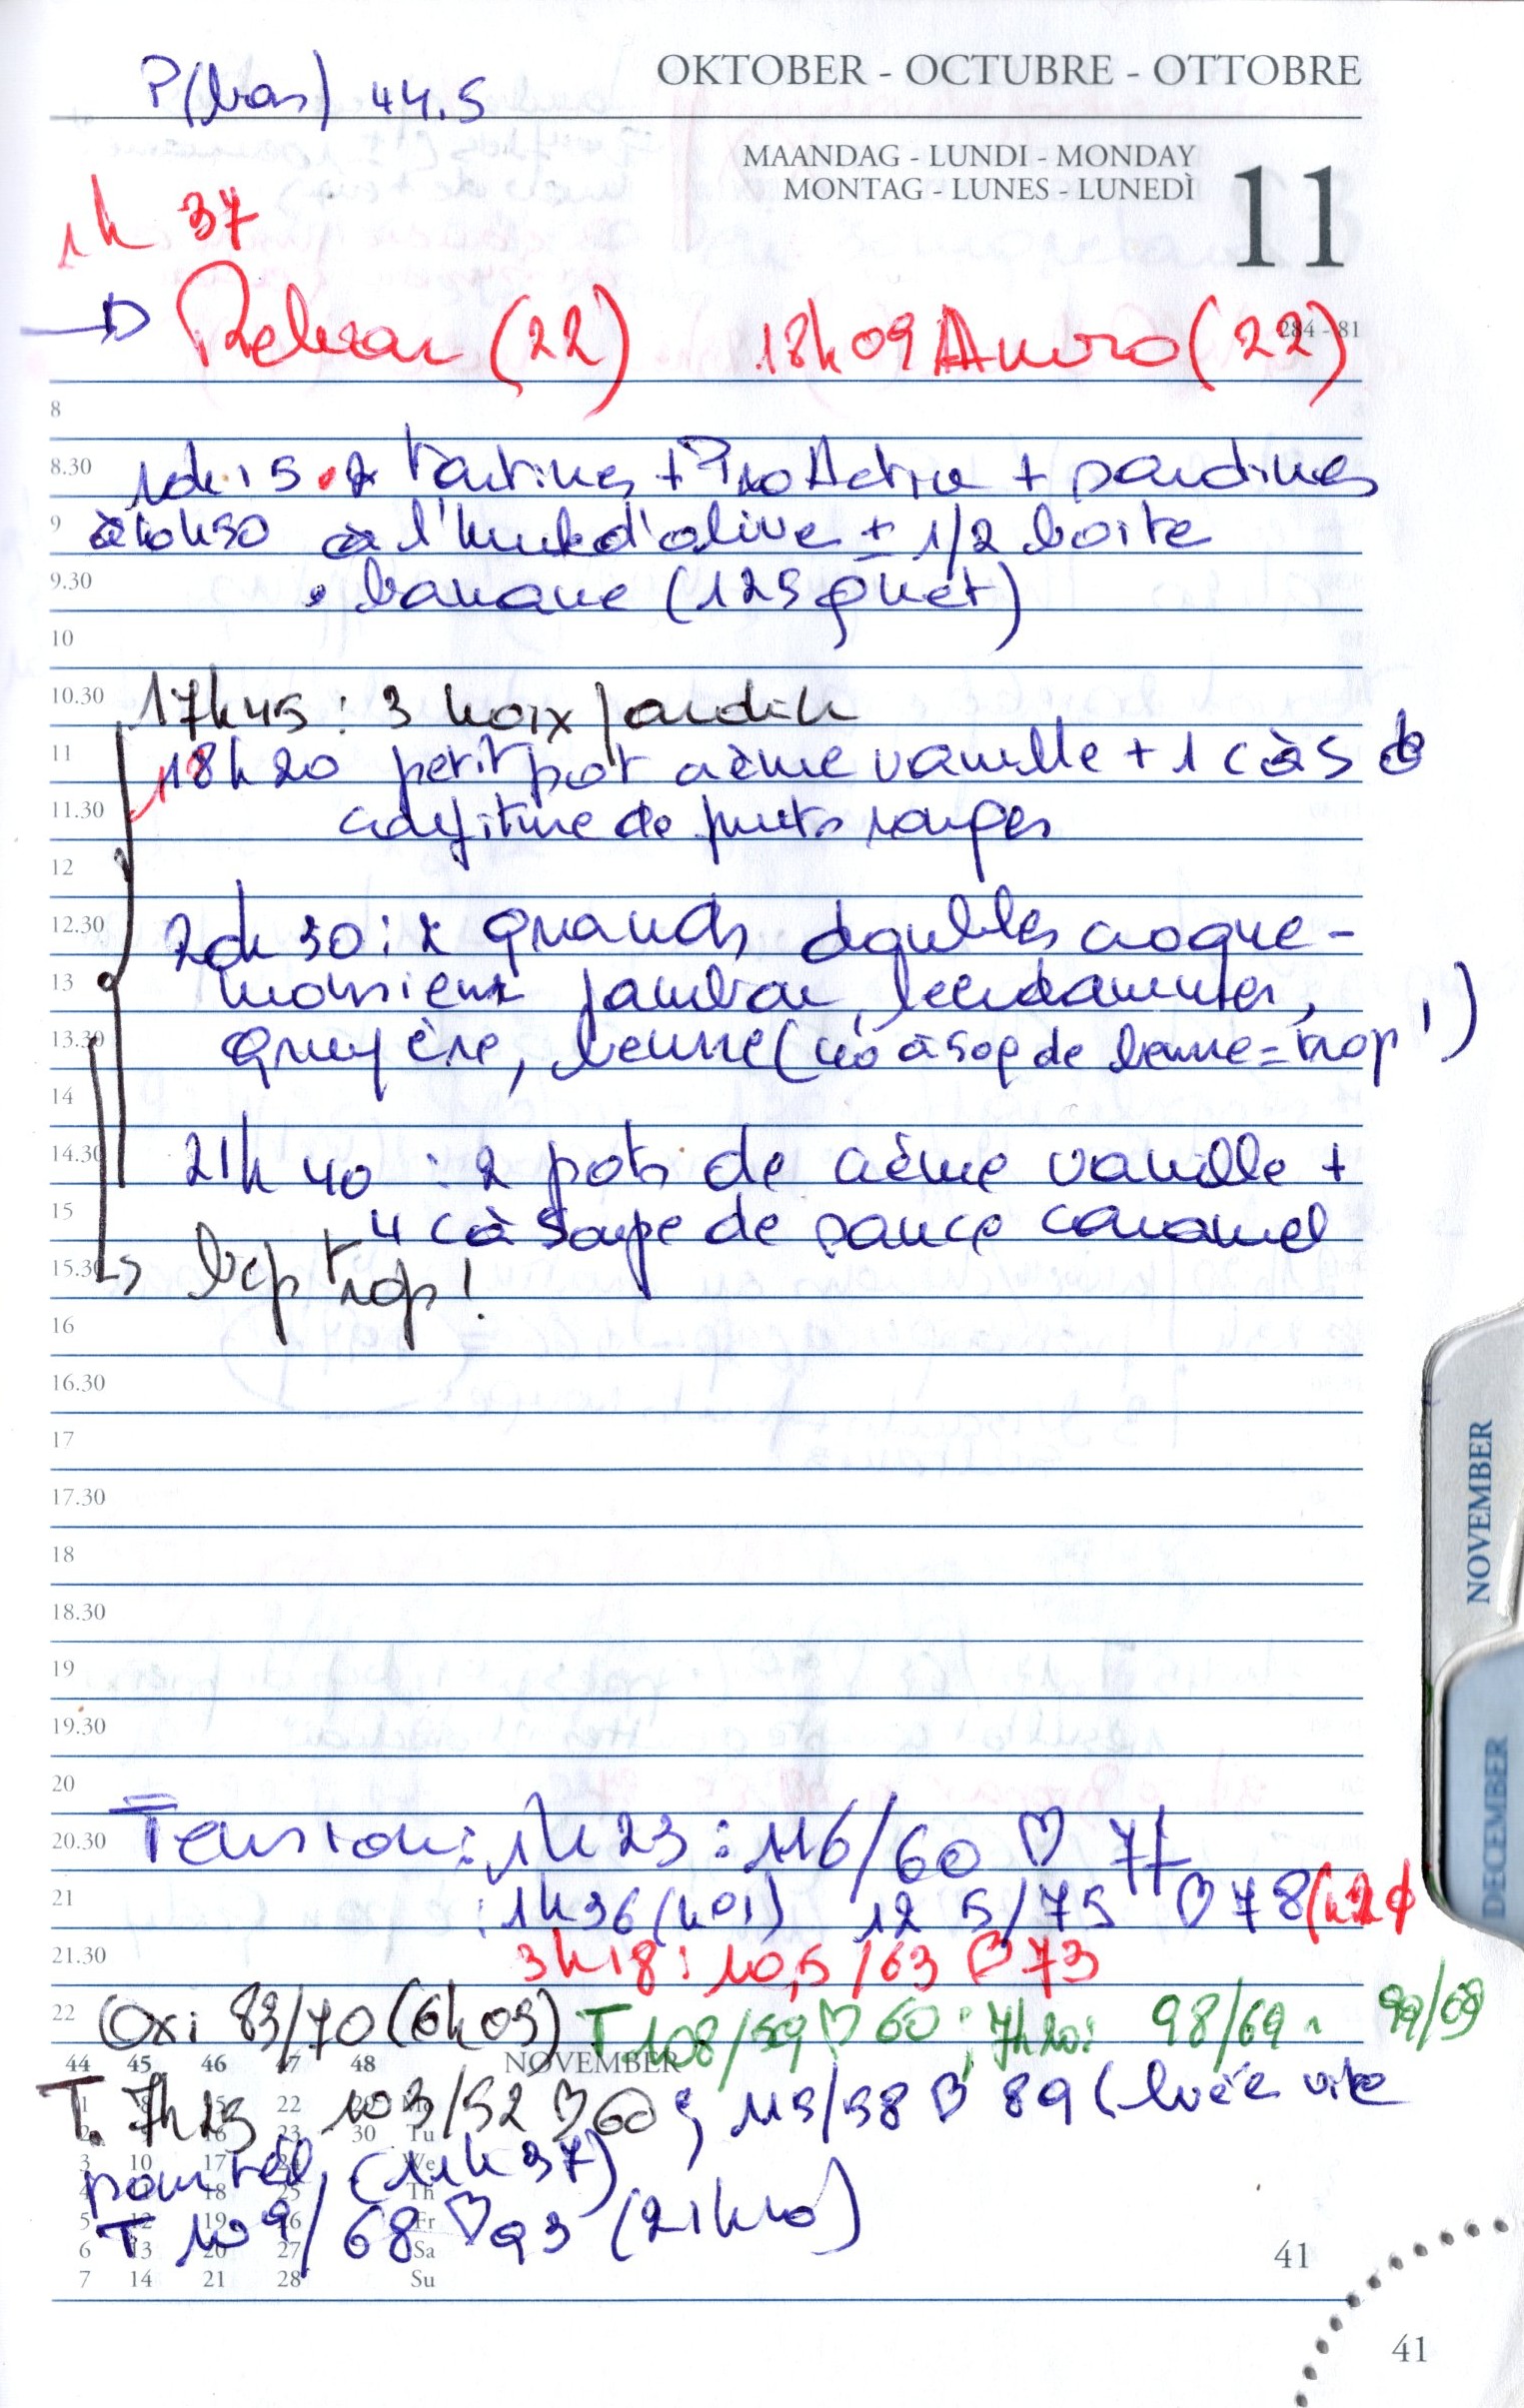 P(bas) 44.5
OKTOBER - OCTUBRE - OTTOBRE
MAANDAG - LUNDI - MONDAY
MONTAG - LUNES - LUNEDÌ
11
1h 37
284 - 81
(22) 18h09 (22)
8
8.30 10h15 2 tartines + ProActiv + sardines
9 à 10h30 à l'huile d'olive ± 1/2 boite
9.30 • banane (125 g net)
10
10.30 17h45 : 3 noix
11 18h20 petit pot crème vanille + 1 c à S de
11.30 confiture de fruits rouges
12
12.30 20h30 : 2 grands doubles croque-
13 monsieur jambon, leerdammer,
13.30 gruyère, beurre ( à 50g de beurre = trop !)
14
14.30 21h40 : 2 pots de crème vanille +
15 4 c à Soupe de sauce caramel
15.30 bcp trop !
16
16.30
17
17.30
18
18.30
19
19.30
20
20.30 Tension : 1h23 : 116/60 ♡ 77
21 : 1h36 (moi) 12 5/75 ♡ 78
21.30 3h18 : 10,5/63 ♡ 73
22 Oxi 83/70 (6h03) T 108/59 ♡ 60 ; 7h20 : 98/69 99/69
44 45 46 47 48 NOVEMBER
T. 7h23 103/52 ♡ 60 ; 115/58 ♡ 89 (levée vite
pour tél, (11h37)
T 109/68 ♡ 93 (21h40)
1 8 15 22 29 Mo
2 9 16 23 30 Tu
3 10 17 24 We
4 11 18 25 Th
5 12 19 26 Fr
6 13 20 27 Sa
7 14 21 28 Su
41
41
NOVEMBER
DECEMBER